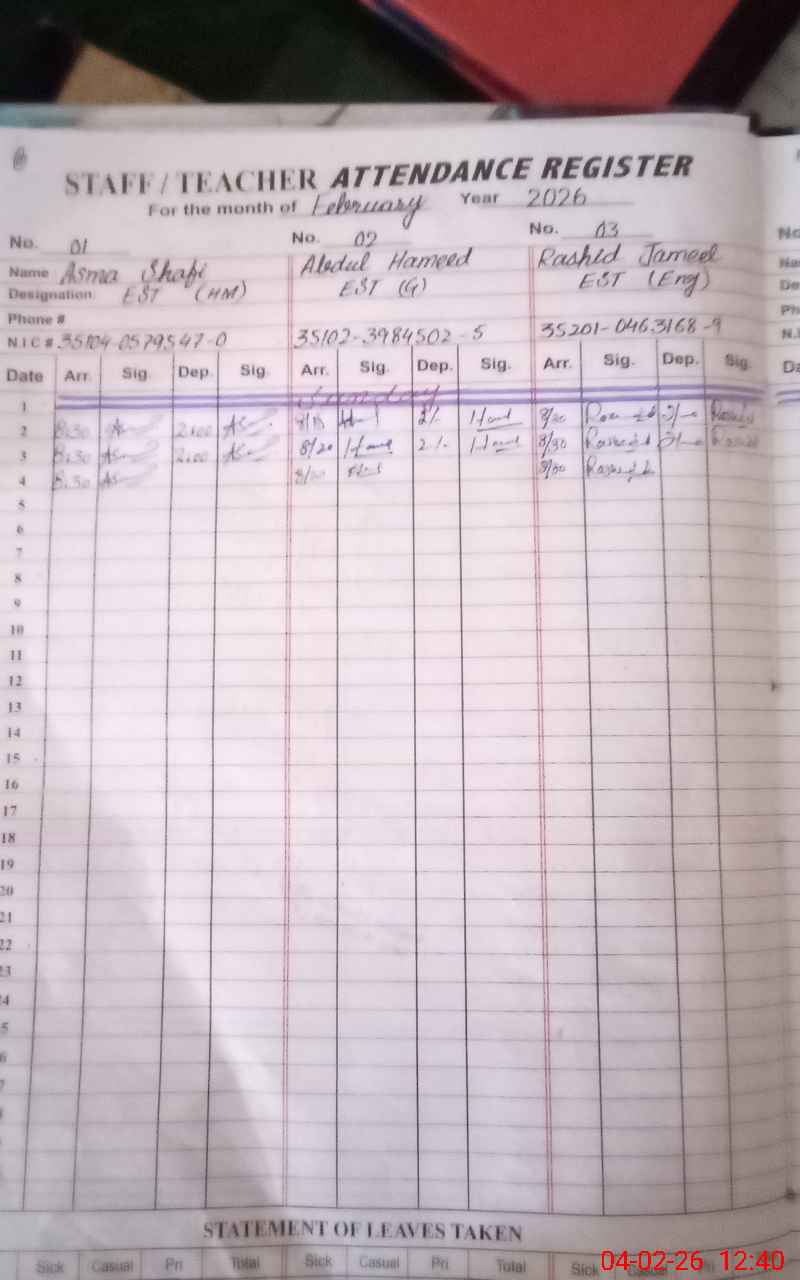 STAFF / TEACHER ATTENDANCE REGISTER
For the month of February Year 2026
No. 01 No. 02 No. 03
Name Asma Shafi Abdul Hameed Rashid Jameel
Designation EST (HM) EST (G) EST (Eng)
Phone #
N.I.C # 35104-0579547-0 35102-3984502-5 35201-0463168-9
Date Arr. Sig. Dep. Sig. Arr. Sig. Dep. Sig. Arr. Sig. Dep. Sig.
1 Sunday
2 8.30 2.00 2/-
3 8.30 2.00 8/20 2/- 8/30 Rasheed
4 8.30 Rasheed
5
6
7
8
9
10
11
12
13
14
15
16
17
18
19
20
21
22
23
4
5
6
7
STATEMENT OF LEAVES TAKEN
Sick Casual Pri Total Sick Casual Pri Total Sick Casual
04-02-26 12:40